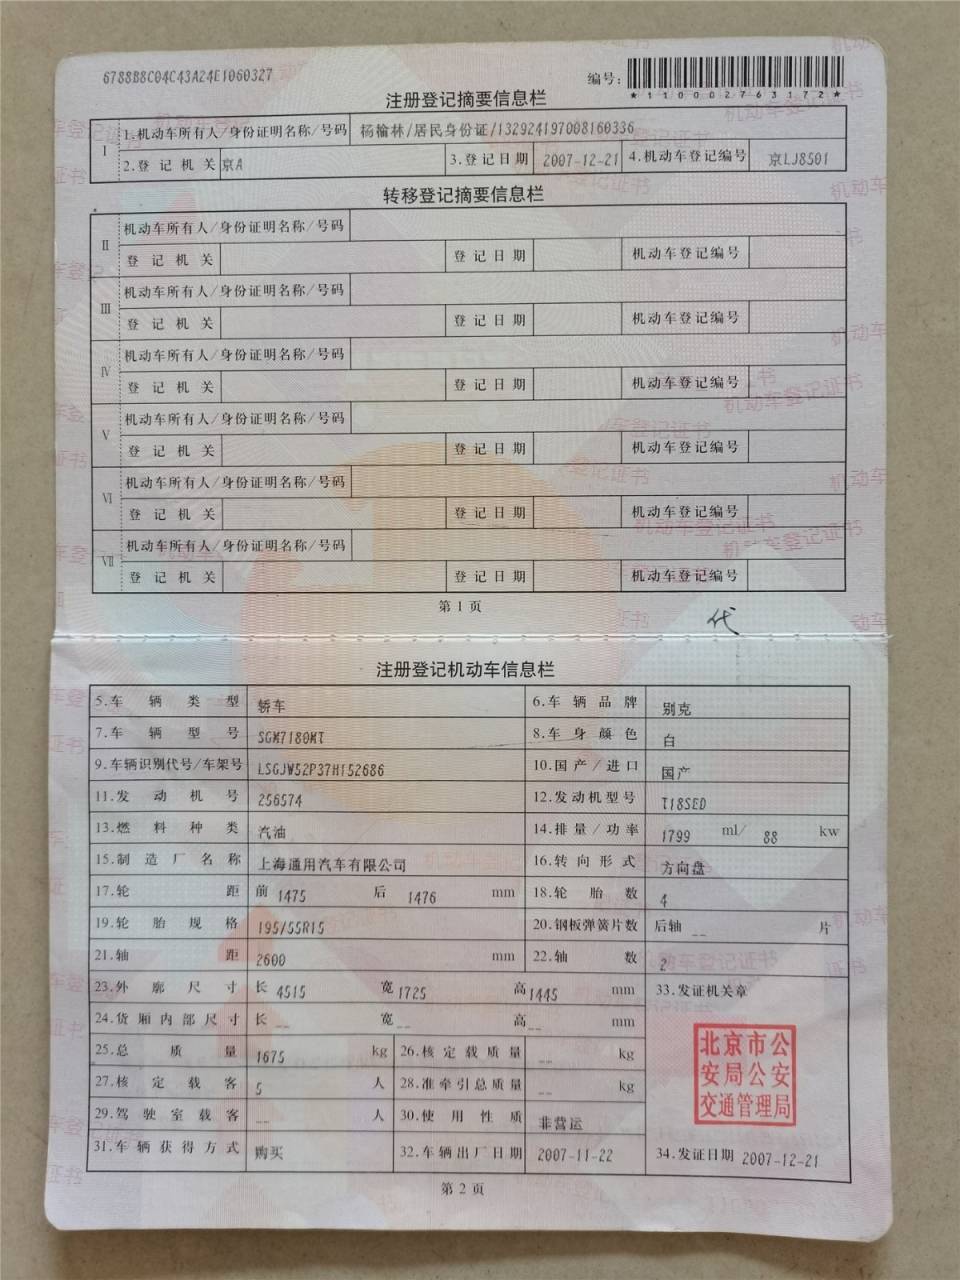 6788B8C04C43A24E1060327
编号:
*110002763172*
注册登记摘要信息栏
I
1.机动车所有人/身份证明名称/号码 杨榆林/居民身份证/132924197008160336
2.登记机关 京A 3.登记日期 2007-12-21 4.机动车登记编号 京LJ8501
转移登记摘要信息栏
II
机动车所有人/身份证明名称/号码
登记机关 登记日期 机动车登记编号
III
机动车所有人/身份证明名称/号码
登记机关 登记日期 机动车登记编号
IV
机动车所有人/身份证明名称/号码
登记机关 登记日期 机动车登记编号
V
机动车所有人/身份证明名称/号码
登记机关 登记日期 机动车登记编号
VI
机动车所有人/身份证明名称/号码
登记机关 登记日期 机动车登记编号
VII
机动车所有人/身份证明名称/号码
登记机关 登记日期 机动车登记编号
第1页
代
注册登记机动车信息栏
5.车辆类型 轿车 6.车辆品牌 别克
7.车辆型号 SGM7180MT 8.车身颜色 白
9.车辆识别代号/车架号 LSGJW52P37H152686 10.国产/进口 国产
11.发动机号 256574 12.发动机型号 T18SED
13.燃料种类 汽油 14.排量/功率 1799 ml/ 88 kw
15.制造厂名称 上海通用汽车有限公司 16.转向形式 方向盘
17.轮距 前 1475 后 1476 mm 18.轮胎数 4
19.轮胎规格 195/55R15 20.钢板弹簧片数 后轴 -- 片
21.轴距 2600 mm 22.轴数 2
23.外廓尺寸 长 4515 宽 1725 高 1445 mm 33.发证机关章
24.货厢内部尺寸 长 -- 宽 -- 高 -- mm
25.总质量 1675 kg 26.核定载质量 -- kg
27.核定载客 5 人 28.准牵引总质量 -- kg
29.驾驶室载客 -- 人 30.使用性质 非营运
31.车辆获得方式 购买 32.车辆出厂日期 2007-11-22 34.发证日期 2007-12-21
北京市公
安局公安
交通管理局
第2页